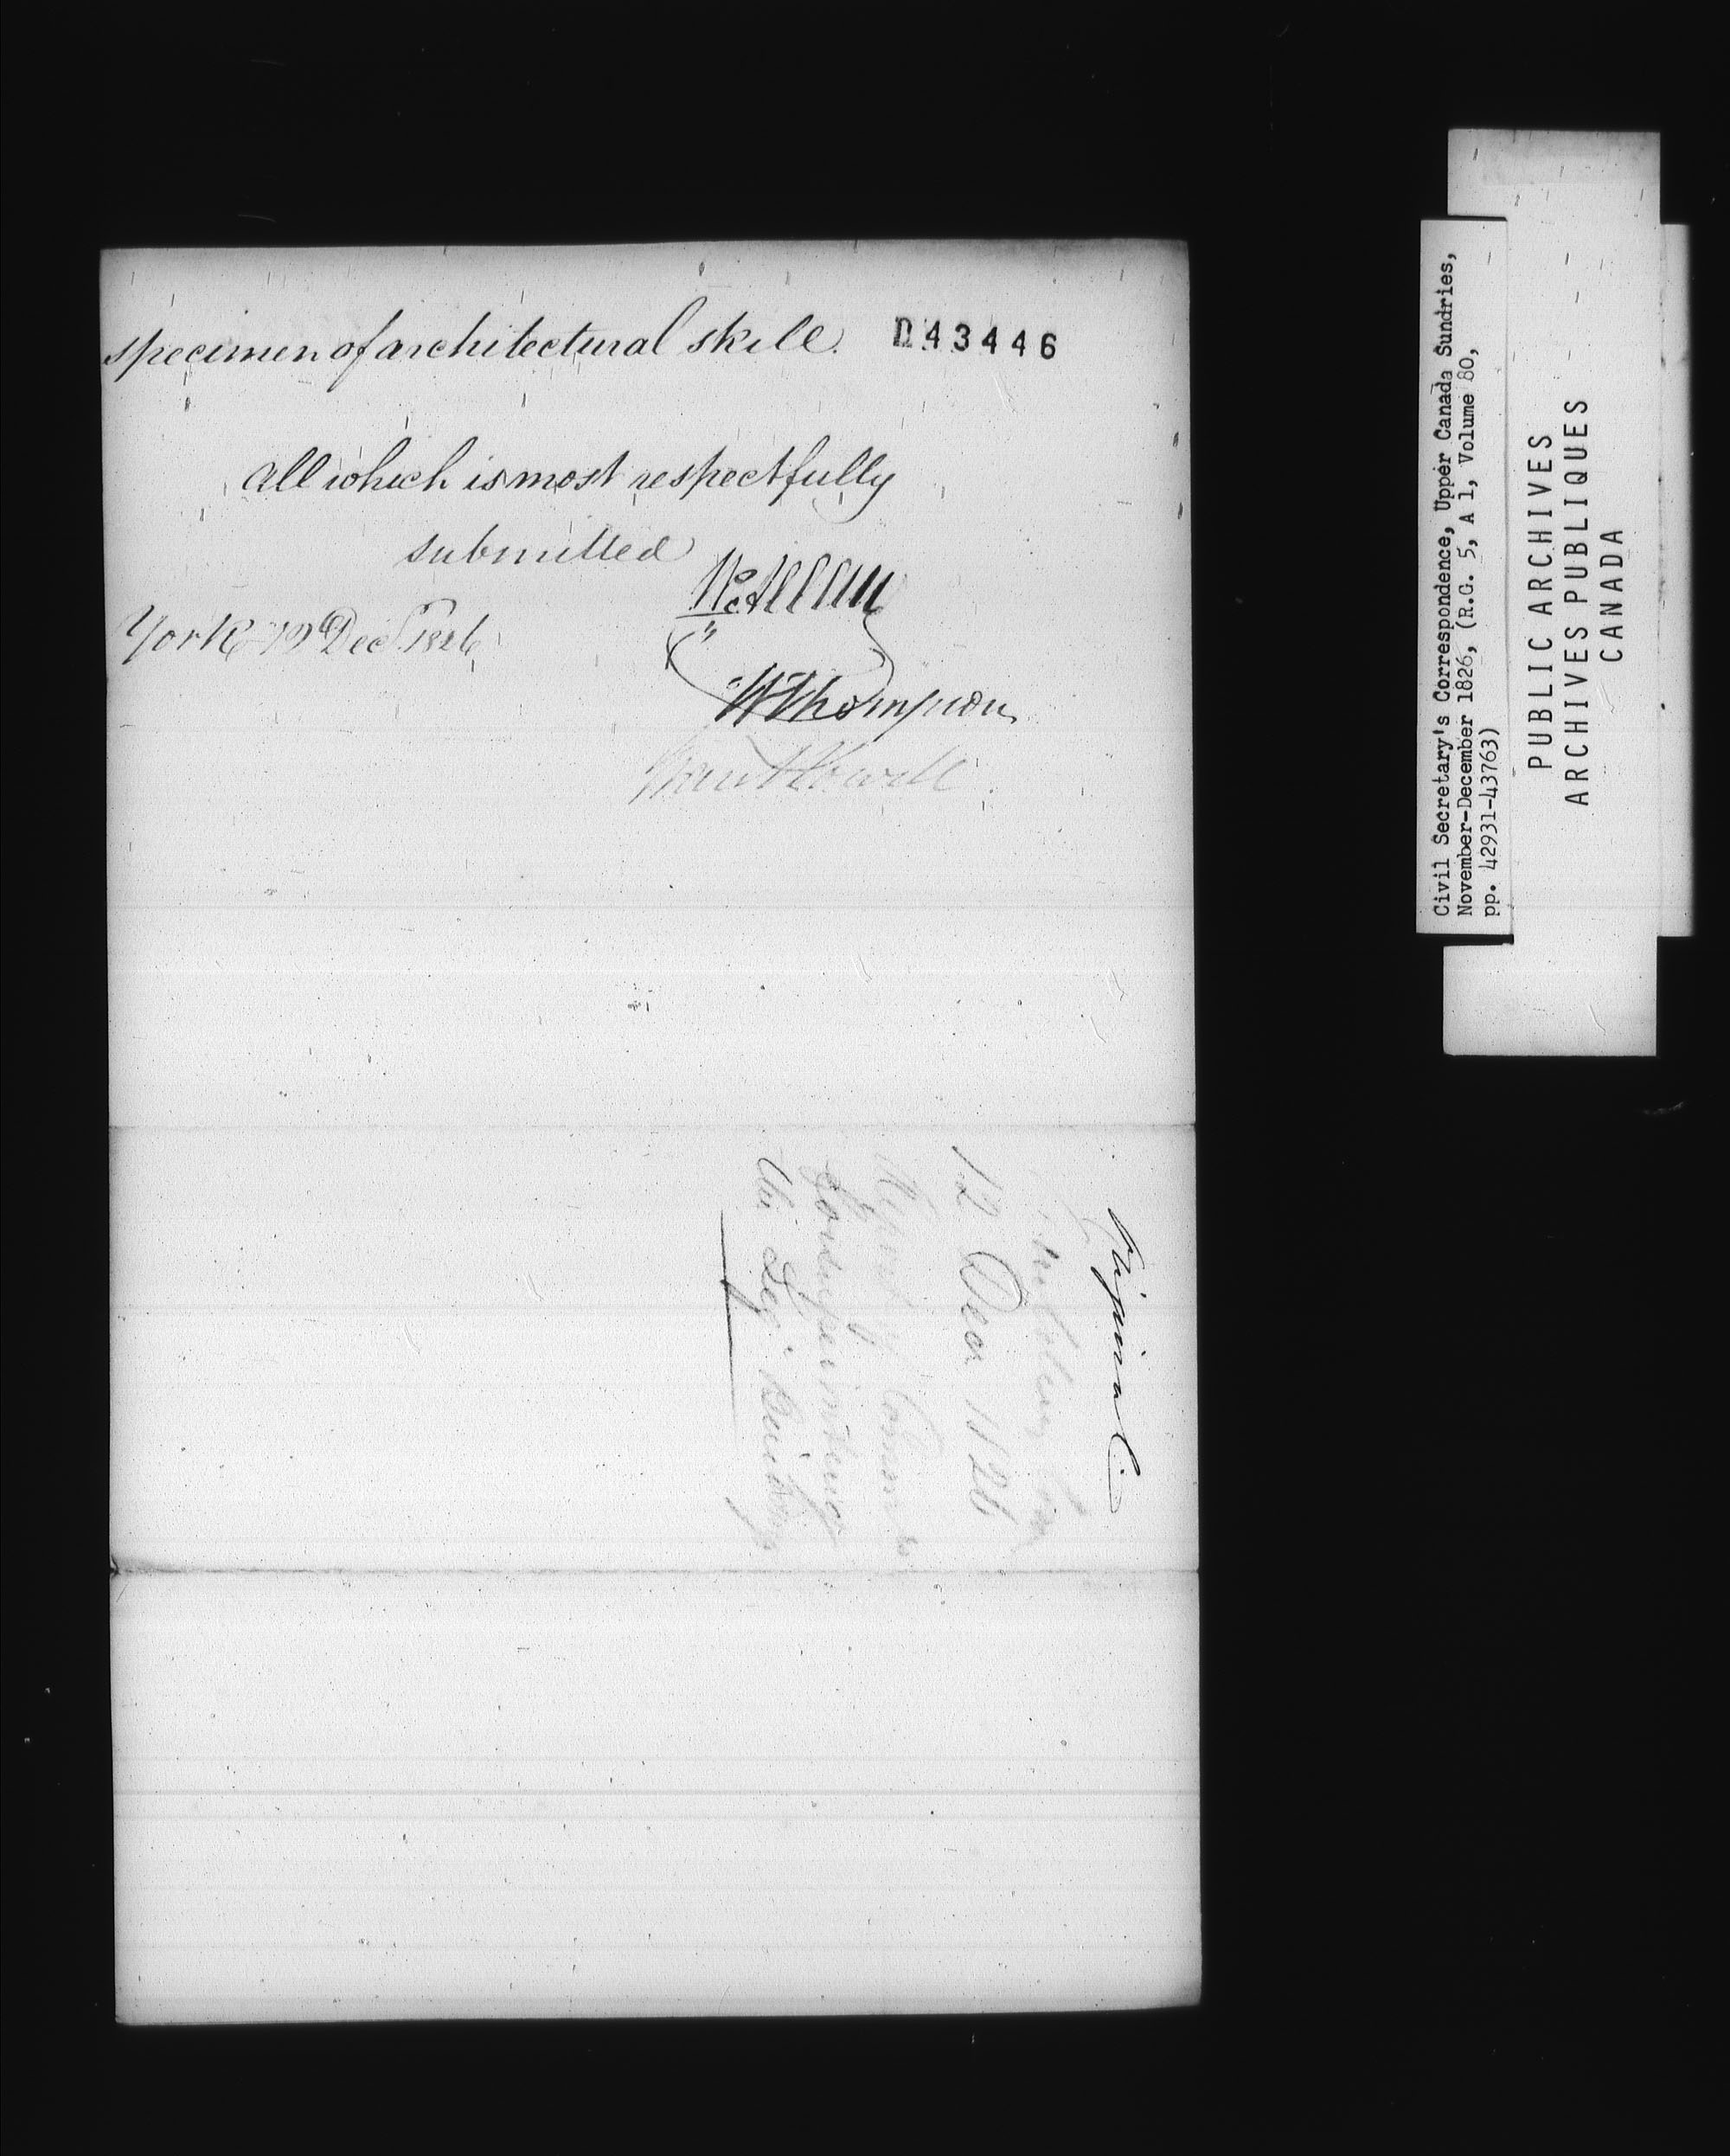 specimen of architectural skill.
D43446
all which is most respectfully
submitted
York 19 Dec 1826
W Allan
W Thompson
Grant Powell
Original
12 Decr 1826
Report of Comrs
for superintendg
the Leg. Buildings
Civil Secretary's Correspondence, Upper Canada Sundries,
November-December 1826, (R.G. 5, A 1, Volume 80,
pp. 42931-43763)
PUBLIC ARCHIVES
ARCHIVES PUBLIQUES
CANADA